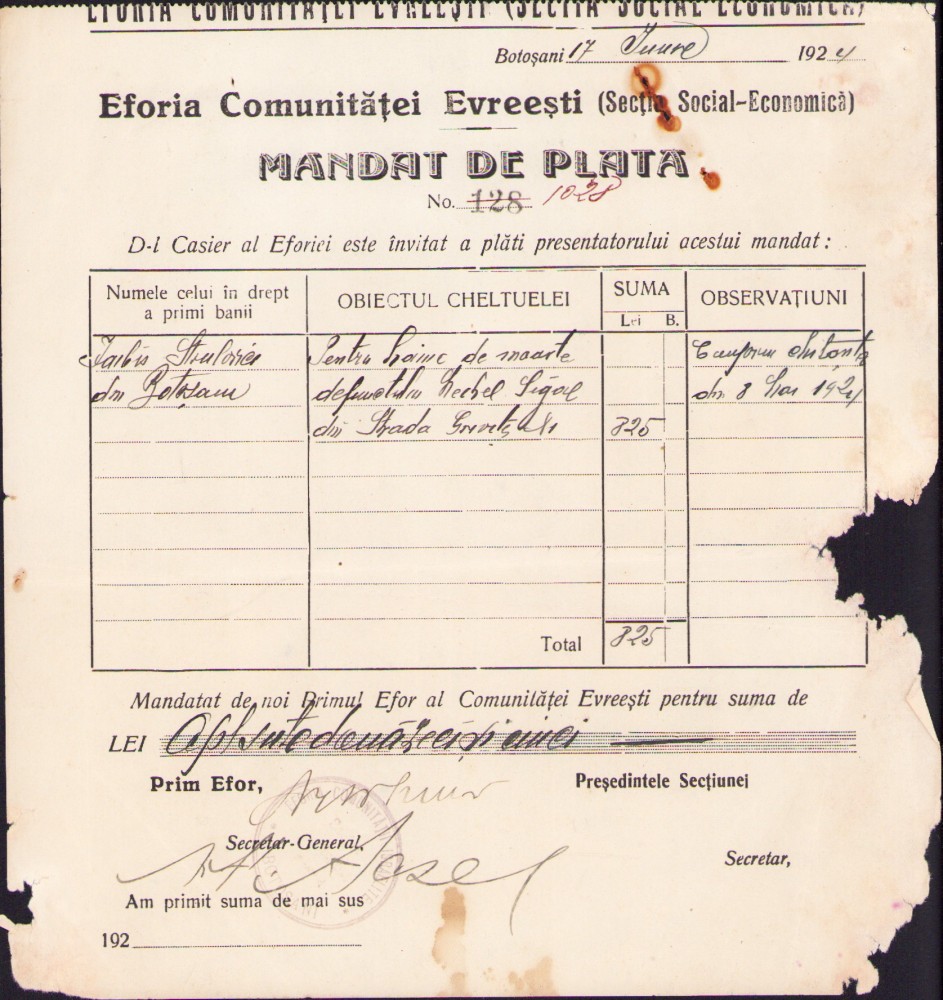 EFORIA COMUNITĂȚEI EVREEȘTI (SECȚIA SOCIAL ECONOMICĂ)
Botoșani 17 Iunie 1924
Eforia Comunităței Evreești (Secția Social-Economică)
MANDAT DE PLATA
No. 128 1028
D-l Casier al Eforiei este învitat a plăti presentatorului acestui mandat:
Numele celui în drept a primi banii
OBIECTUL CHELTUELEI
SUMA
Lei B.
OBSERVAȚIUNI
din Botoșani
Pentru haine de moarte
defunctului Segal
din Strada
825
Conform
din 8 1924
Total 825
Mandatat de noi Primul Efor al Comunităței Evreești pentru suma de
LEI Opt sute douăzeci și cinci
Prim Efor,
Președintele Secțiunei
Secretar-General,
Secretar,
Am primit suma de mai sus
192